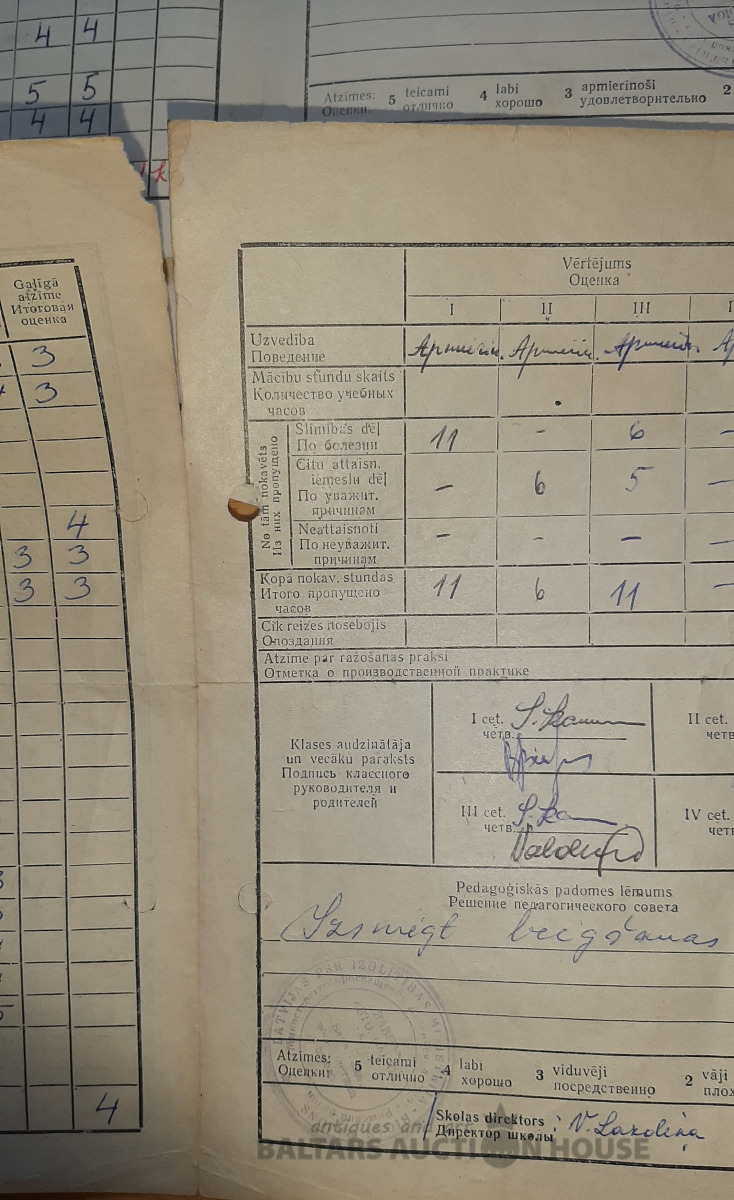 4 4
5 5
4 4
Atzīmes: 5 teicami 4 labi 3 apmierinoši 2
Оценки: отлично хорошо удовлетворительно
Galīgā
atzīme
Итоговая
оценка
3
3
4
3 3
3 3
4
Vērtējums
Оценка
I II III
Uzvedība
Поведение
Mācību stundu skaits
Количество учебных
часов
No tām nokavēts
Из них пропущено
Slimības dēļ
По болезни
11 - 6 -
Citu attaisn.
iemeslu dēļ
По уважит.
причинам
- 6 5 -
Neattaisnoti
По неуважит.
причинам
- - - -
Kopā nokav. stundas
Итого пропущено
часов
11 6 11 -
Cik reizes nosebojis
Опоздания
Atzīme par ražošanas praksi
Отметка о производственной практике
Klases audzinātāja
un vecāku paraksts
Подпись классного
руководителя и
родителей
I cet.
четв.
II cet.
III cet.
четв.
IV cet.
Pedagoģiskās padomes lēmums
Решение педагогического совета
Izsniegt beigšanas
Atzīmes: 5 teicami 4 labi 3 viduvēji 2 vāji
Оценки: отлично хорошо посредственно
Skolas direktors
Директор школы
antiques and art
BALTARS AUCTION HOUSE